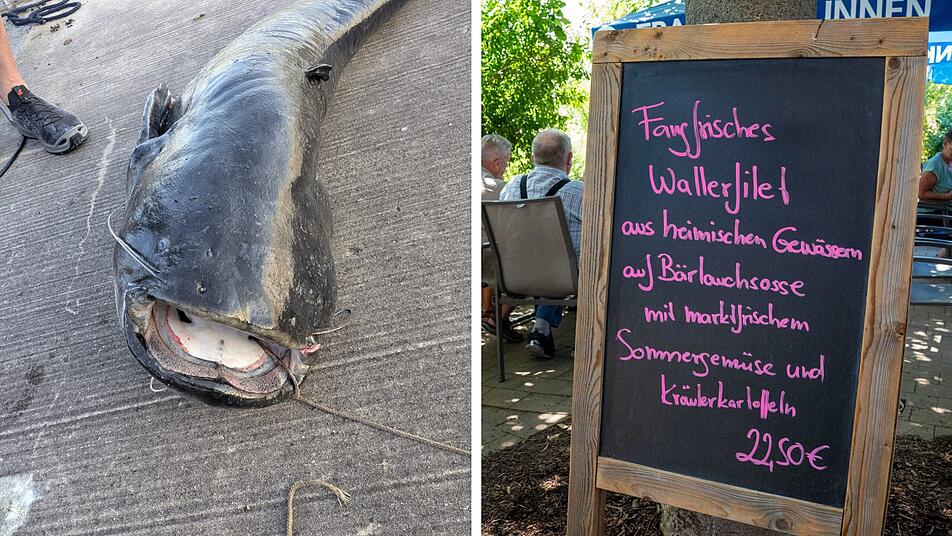 INNEN
Fangfrisches
Wallerfilet
aus heimischen Gewässern
auf Bärlauchsosse
mit marktfrischem
Sommergemüse und
Kräuterkartoffeln
22,50€